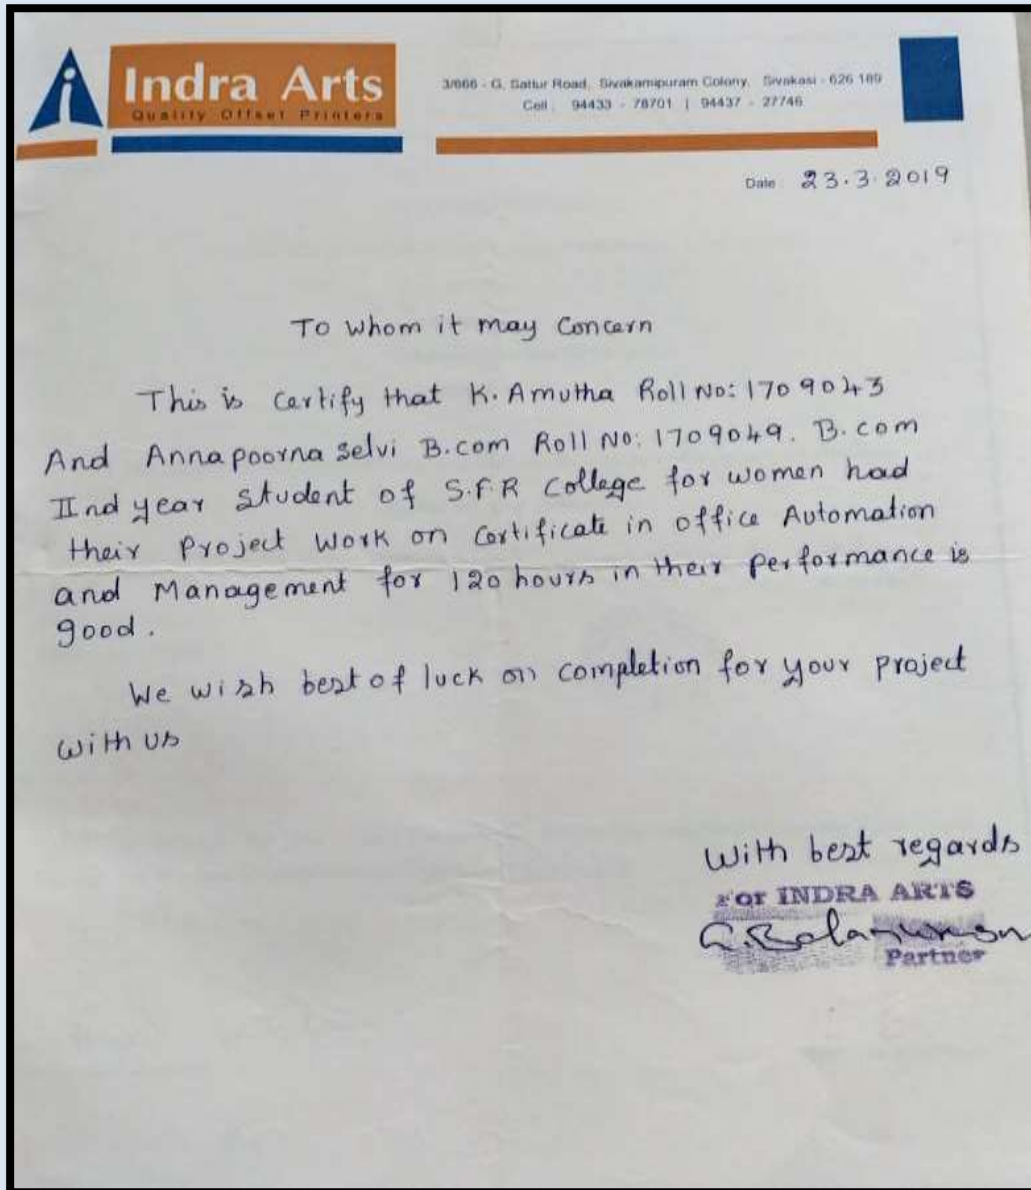 i
Indra Arts
Quality Offset Printers
3/666 - G, Sattur Road, Sivakamipuram Colony, Sivakasi - 626 189
Cell : 94433 - 78701 | 94437 - 27746
Date 23.3.2019
To whom it may Concern
This is Certify that K. Amutha Roll No: 1709043
And Annapoorna selvi B.com Roll No: 1709049. B.com
IInd year Student of S.F.R College for women had
their Project Work on Certificate in office Automation
and Management for 120 hours in their performance is
good.
We wish best of luck on completion for your project
with us
With best regards
For INDRA ARTS
Partner